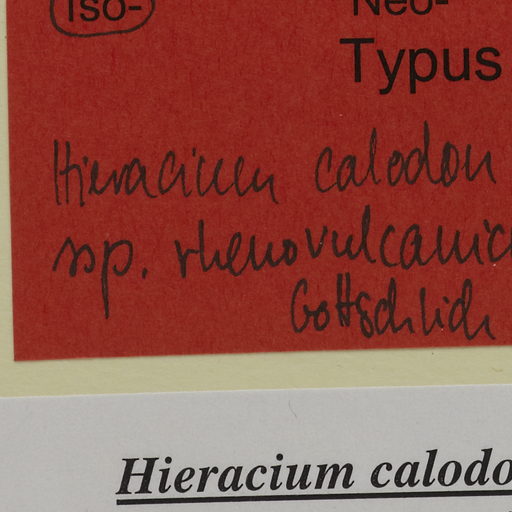 Iso- Neo-
Typus
Hieracium calodon
ssp. rhenovulcanic
Gottschlich
Hieracium calodo